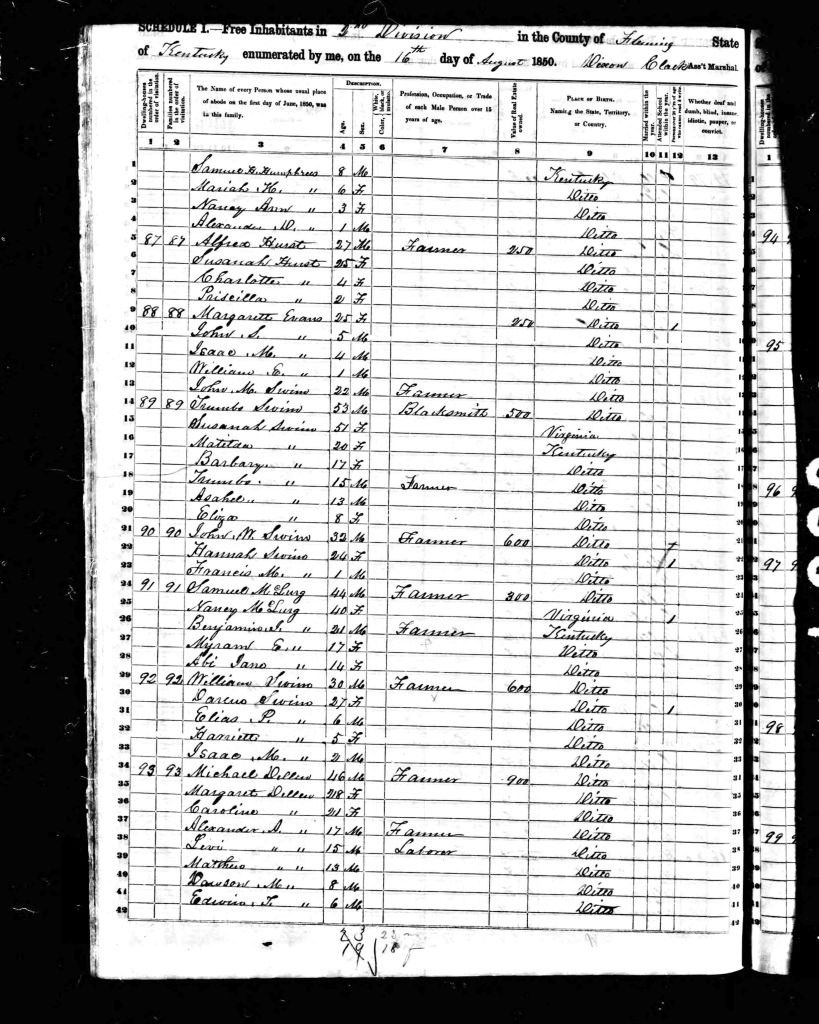 SCHEDULE I.—Free Inhabitants in 2nd Division in the County of Fleming State
of Kentucky enumerated by me, on the 16th day of August 1850. Dixon Clack Ass't Marshal
Dwelling-houses numbered in the order of visitation. Families numbered in the order of visitation. The Name of every Person whose usual place of abode on the first day of June, 1850, was in this family. Description. Age. Sex. Color, White, black, or mulatto. Profession, Occupation, or Trade of each Male Person over 15 years of age. Value of Real Estate owned. Place of Birth. Naming the State, Territory, or Country. Married within the year. Attended School within the year. Whether deaf and dumb, blind, insane, idiotic, pauper, or convict.
1 2 3 4 5 6 7 8 9 10 11 12 13
1 Samuel H. Humphrees 8 M Kentucky
2 Mariah H. " 6 F Ditto
3 Nancy Ann " 3 F Ditto
4 Alexander D. " 1 M Ditto
5 87 87 Alfred Hurst 27 M Farmer 250 Ditto
6 Susanah Hurst 25 F Ditto
7 Charlotte " 4 F Ditto
8 Priscilla " 2 F Ditto
9 88 88 Margarett Evans 25 F 250 Ditto 1
10 John S. " 5 M Ditto
11 Isaac M. " 4 M Ditto
12 William " 1 M Ditto
13 John M. Swim 22 M Farmer Ditto
14 89 89 Trumbo Swim 53 M Blacksmith 500 Ditto
15 Susanah Swim 51 F Virginia
16 Matilda " 20 F Kentucky
17 Barbary " 17 F Ditto
18 Trumbo " 15 M Farmer Ditto
19 Asahel " 13 M Ditto
20 Eliza " 8 F Ditto
21 90 90 John W. Swim 32 M Farmer 600 Ditto
22 Hannah Swim 24 F Ditto 1
23 Francis M. " 1 M Ditto
24 91 91 Samuel McLurg 44 M Farmer 300 Ditto
25 Nancy McLurg 40 F Virginia 1
26 Benjamin " 21 M Farmer Kentucky
27 Myram E. " 17 F Ditto
28 Abi Jane " 14 F Ditto
29 92 92 William Swim 30 M Farmer 600 Ditto
30 Darcus Swim 27 F Ditto 1
31 Elias P. " 6 M Ditto
32 Harriett " 5 F Ditto
33 Isaac M. " 2 M Ditto
34 93 93 Michael Dellen 46 M Farmer 900 Ditto
35 Margaret Dellen F Ditto
36 Caroline " 21 F Ditto
37 Alexander A. " 17 M Farmer Ditto
38 Levi " " 15 M Laborer Ditto
39 Mathew " " 13 M Ditto
40 Dawson M " 8 M Ditto
41 Edwin F. " 6 M Ditto
42
23 23 m
19 18 f
94
95
96
97
98
99